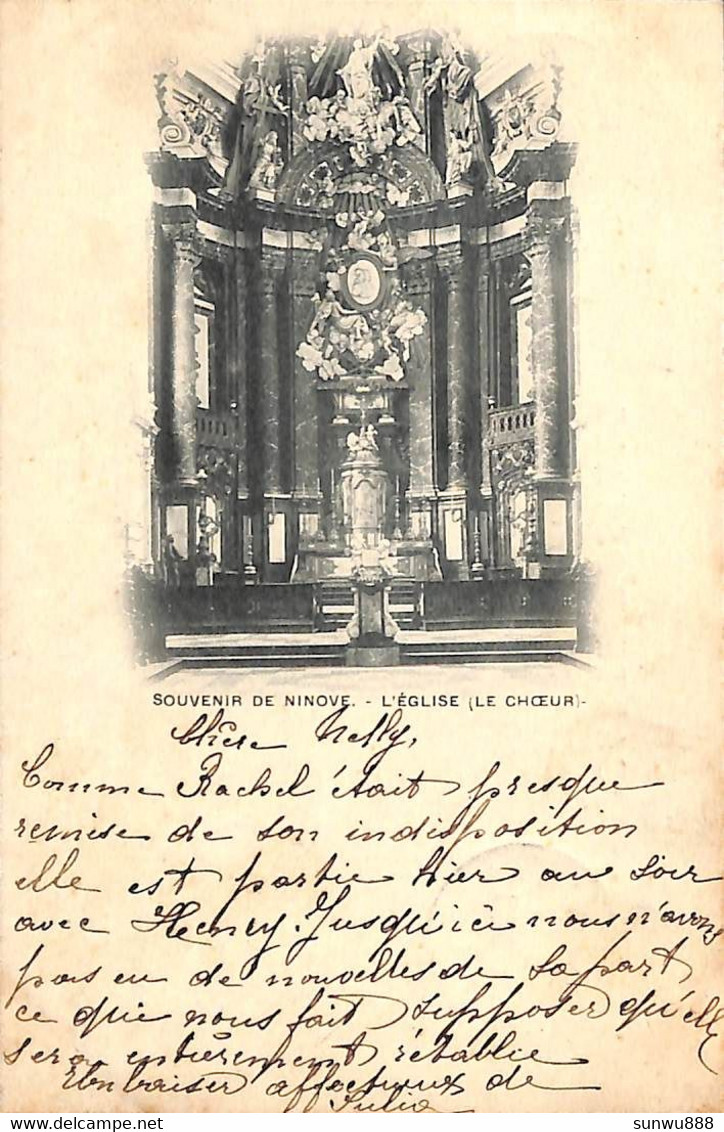 SOUVENIR DE NINOVE. - L'ÉGLISE (LE CHŒUR)-
Chère Nelly,
Comme Rachel était presque
remise de son indisposition
elle est partie hier au soir
avec Henry. Jusqu'ici nous n'avons
pas eu de nouvelles de sa part
ce que nous fait supposer qu'elle
sera entièrement rétablie
Un baiser affectueux de
Julia
sunwu888